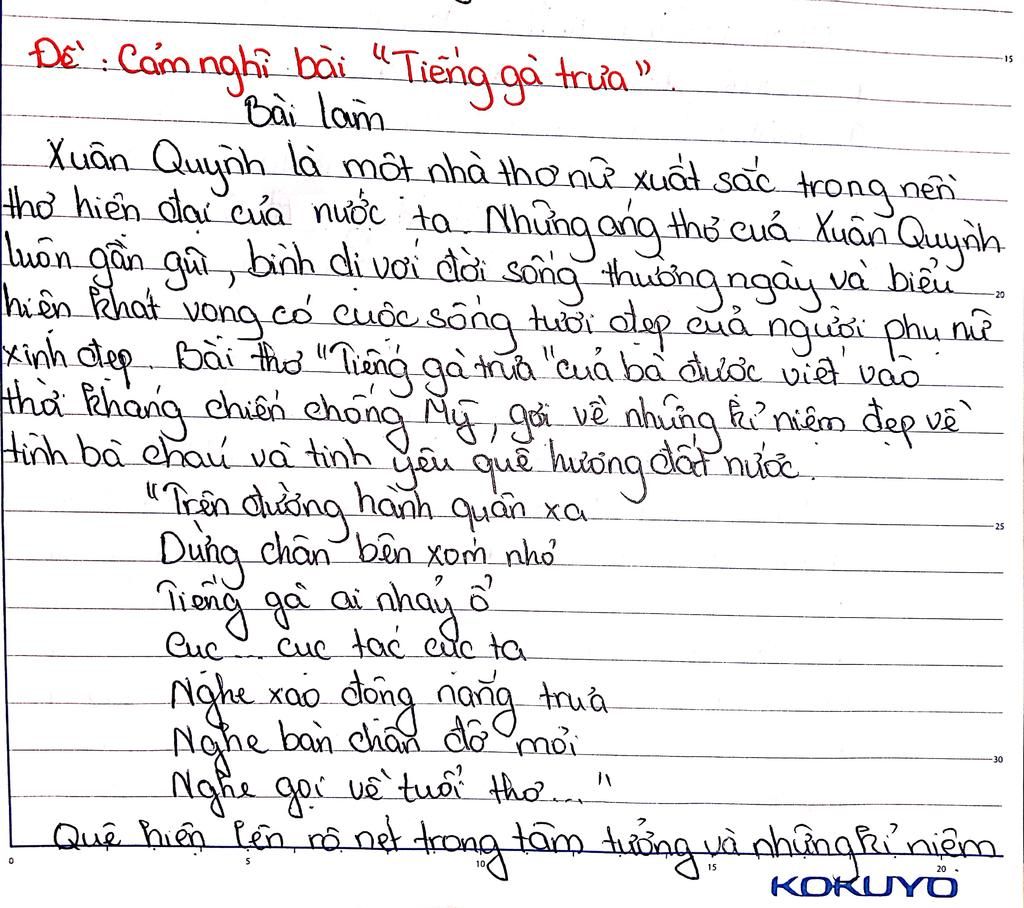 Đề : Cảm nghĩ bài "Tiếng gà trưa".
Bài làm
Xuân Quỳnh là một nhà thơ nữ xuất sắc trong nền
thơ hiện đại của nước ta. Những áng thơ của Xuân Quỳnh
luôn gần gũi, bình dị với đời sống thường ngày và biểu
hiện khát vọng có cuộc sống tươi đẹp của người phụ nữ
xinh đẹp. Bài thơ "Tiếng gà trưa" của bà được viết vào
thời kháng chiến chống Mỹ, gợi về những kỉ niệm đẹp về
tình bà cháu và tình yêu quê hương đất nước.
"Trên đường hành quân xa
Dừng chân bên xóm nhỏ
Tiếng gà ai nhảy ổ
Cục ... cục tác cục ta
Nghe xao động nắng trưa
Nghe bàn chân đỡ mỏi
Nghe gọi về tuổi thơ..."
Quê hiện lên rõ nét trong tâm tưởng và những kỉ niệm
15
20
25
30
0 5 10 15 20
KOKUYO